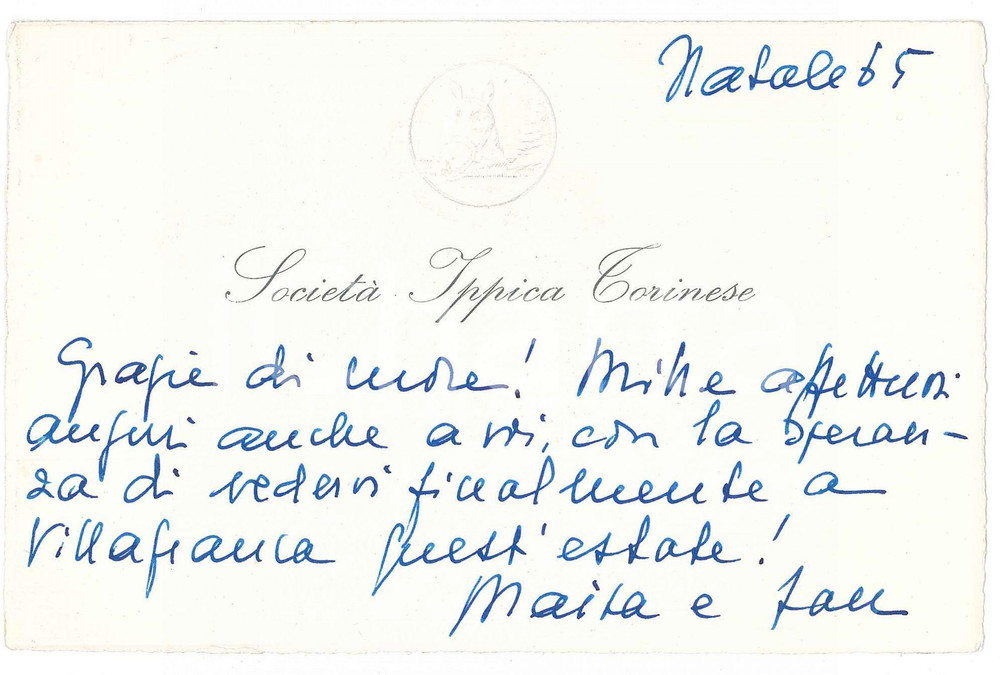 Natale 65
Società Ippica Torinese
Grazie di cuore! Mille affettuosi
auguri anche a voi, con la speran-
za di vedervi finalmente a
Villafranca quest'estate!
e